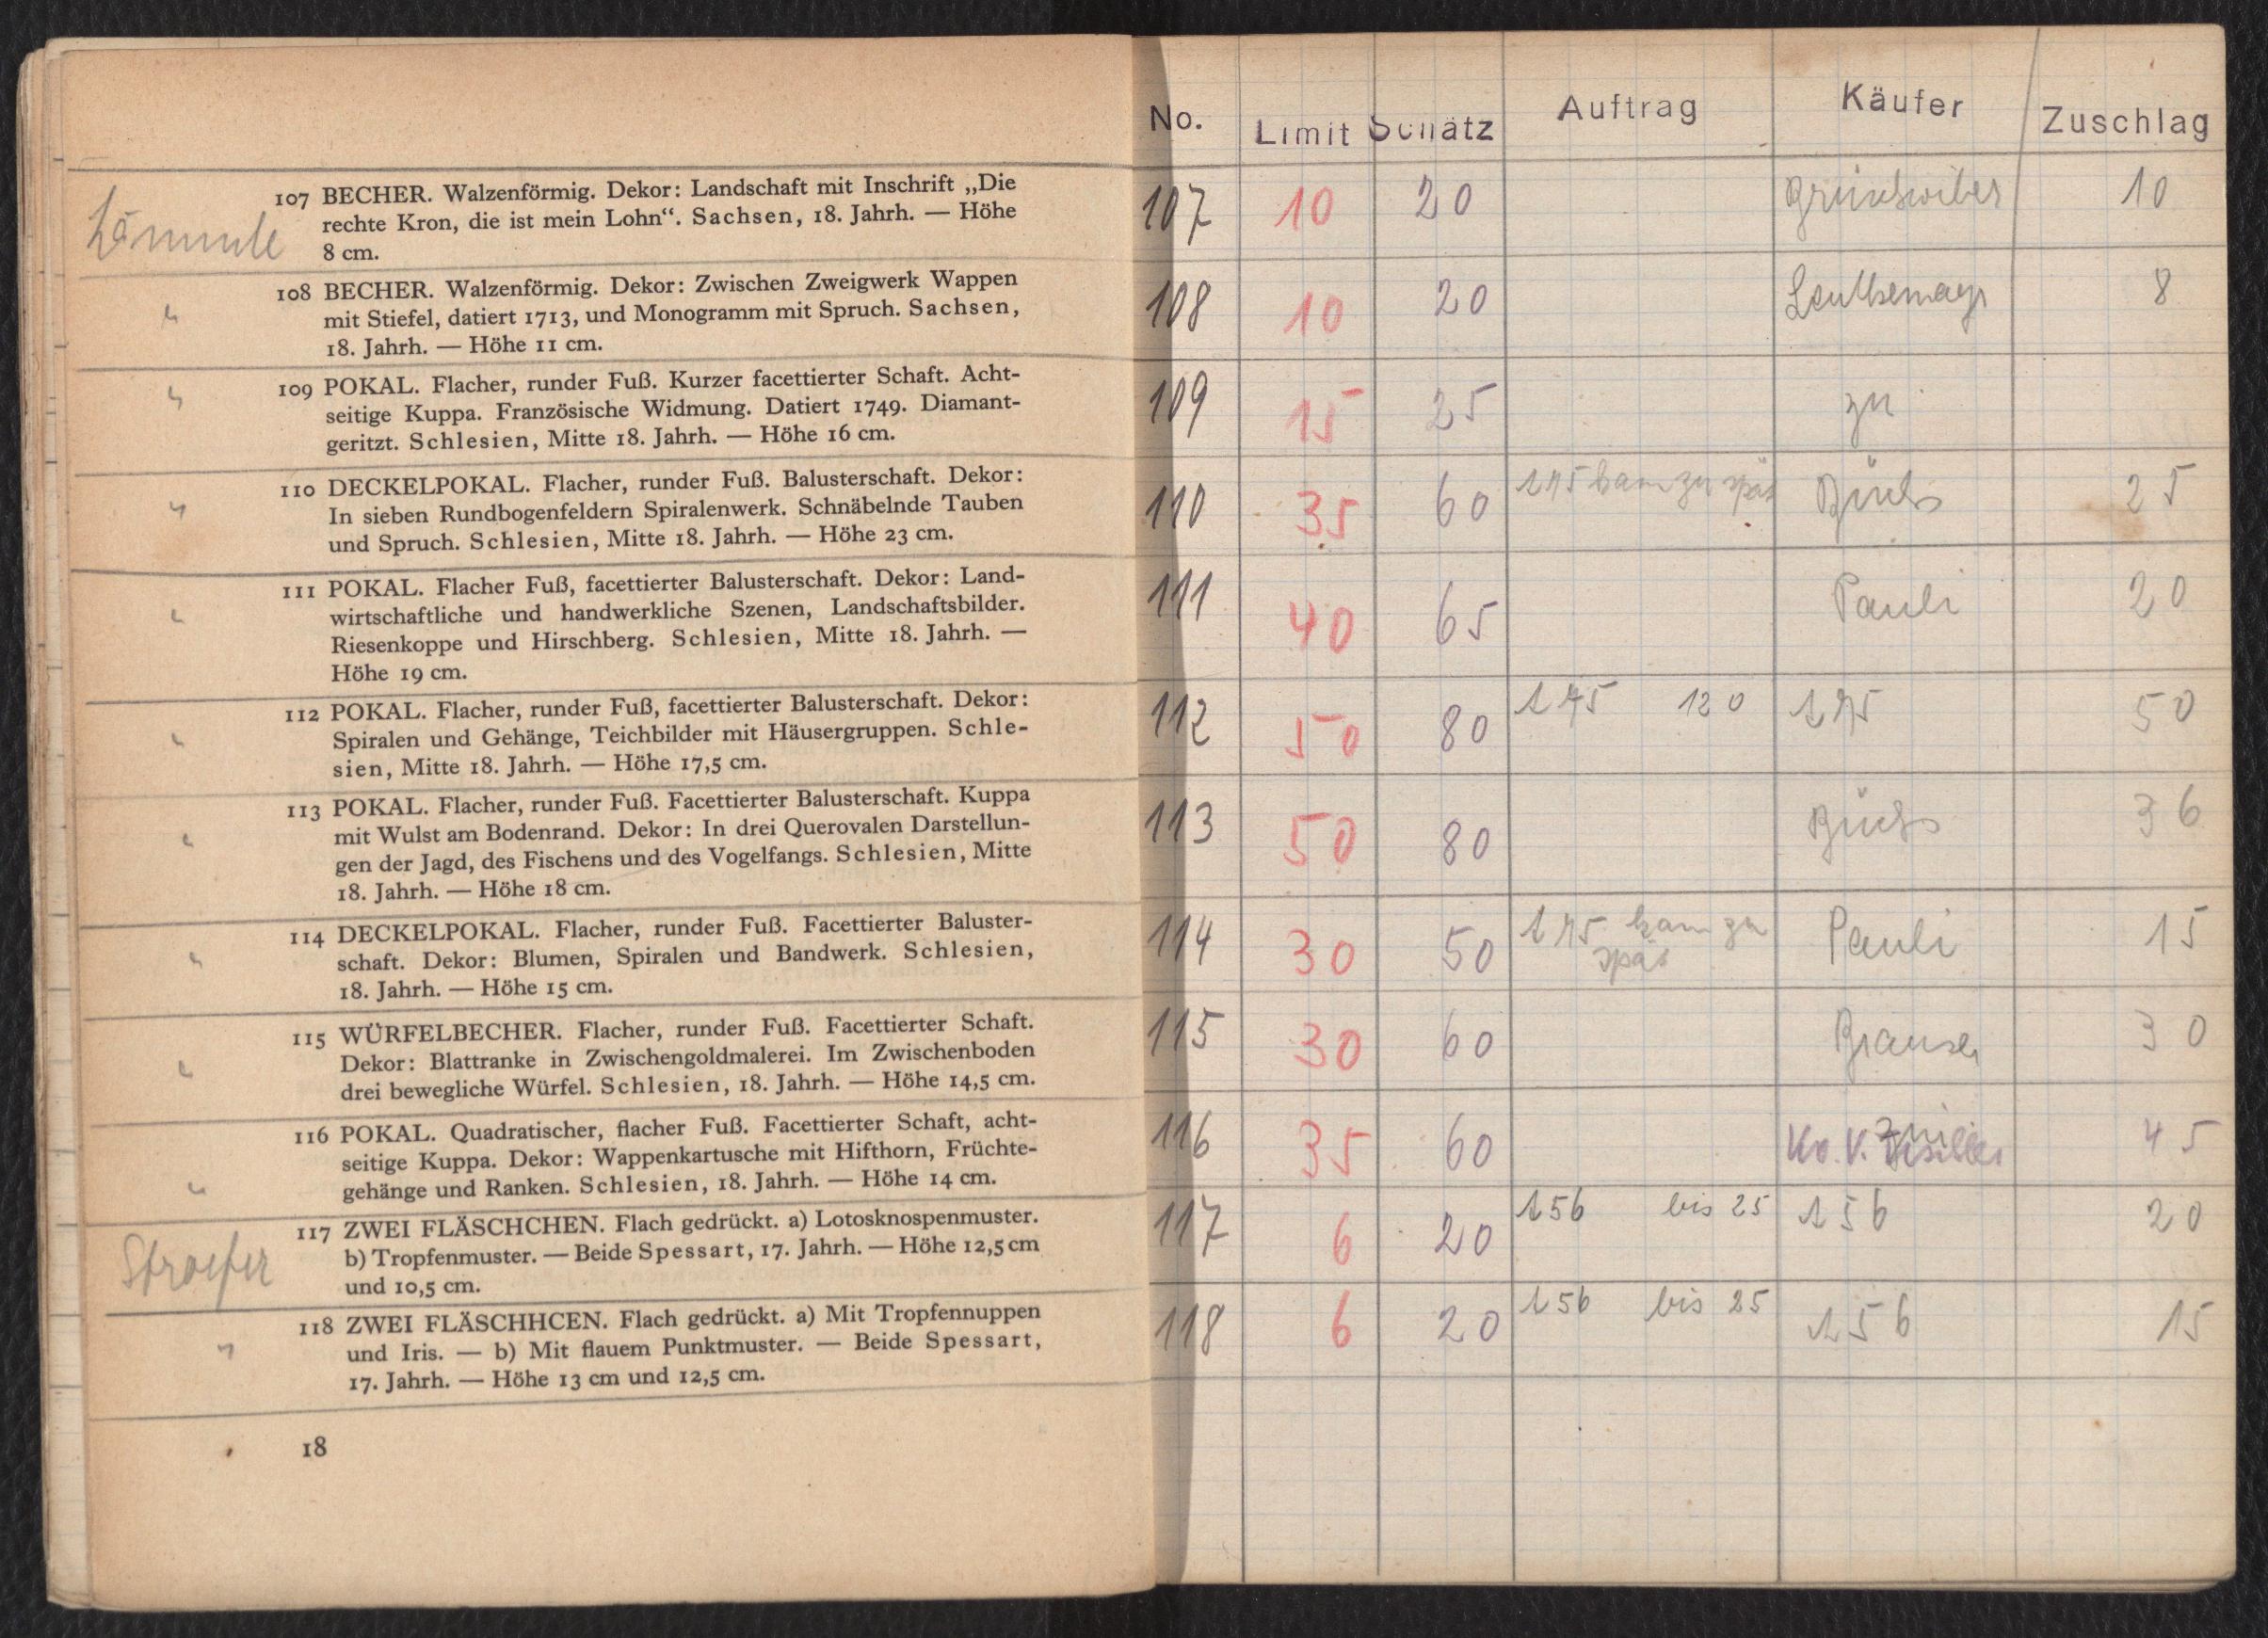 107 BECHER. Walzenförmig. Dekor: Landschaft mit Inschrift „Die
rechte Kron, die ist mein Lohn“. Sachsen, 18. Jahrh. — Höhe
8 cm.
108 BECHER. Walzenförmig. Dekor: Zwischen Zweigwerk Wappen
mit Stiefel, datiert 1713, und Monogramm mit Spruch. Sachsen,
18. Jahrh. — Höhe 11 cm.
109 POKAL. Flacher, runder Fuß. Kurzer facettierter Schaft. Acht-
seitige Kuppa. Französische Widmung. Datiert 1749. Diamant-
geritzt. Schlesien, Mitte 18. Jahrh. — Höhe 16 cm.
110 DECKELPOKAL. Flacher, runder Fuß. Balusterschaft. Dekor:
In sieben Rundbogenfeldern Spiralenwerk. Schnäbelnde Tauben
und Spruch. Schlesien, Mitte 18. Jahrh. — Höhe 23 cm.
111 POKAL. Flacher Fuß, facettierter Balusterschaft. Dekor: Land-
wirtschaftliche und handwerkliche Szenen, Landschaftsbilder.
Riesenkoppe und Hirschberg. Schlesien, Mitte 18. Jahrh. —
Höhe 19 cm.
112 POKAL. Flacher, runder Fuß, facettierter Balusterschaft. Dekor:
Spiralen und Gehänge, Teichbilder mit Häusergruppen. Schle-
sien, Mitte 18. Jahrh. — Höhe 17,5 cm.
113 POKAL. Flacher, runder Fuß. Facettierter Balusterschaft. Kuppa
mit Wulst am Bodenrand. Dekor: In drei Querovalen Darstellun-
gen der Jagd, des Fischens und des Vogelfangs. Schlesien, Mitte
18. Jahrh. — Höhe 18 cm.
114 DECKELPOKAL. Flacher, runder Fuß. Facettierter Baluster-
schaft. Dekor: Blumen, Spiralen und Bandwerk. Schlesien,
18. Jahrh. — Höhe 15 cm.
115 WÜRFELBECHER. Flacher, runder Fuß. Facettierter Schaft.
Dekor: Blattranke in Zwischengoldmalerei. Im Zwischenboden
drei bewegliche Würfel. Schlesien, 18. Jahrh. — Höhe 14,5 cm.
116 POKAL. Quadratischer, flacher Fuß. Facettierter Schaft, acht-
seitige Kuppa. Dekor: Wappenkartusche mit Hifthorn, Früchte-
gehänge und Ranken. Schlesien, 18. Jahrh. — Höhe 14 cm.
Stroefer
117 ZWEI FLÄSCHCHEN. Flach gedrückt. a) Lotosknospenmuster.
b) Tropfenmuster. — Beide Spessart, 17. Jahrh. — Höhe 12,5 cm
und 10,5 cm.
118 ZWEI FLÄSCHHCEN. Flach gedrückt. a) Mit Tropfennuppen
und Iris. — b) Mit flauem Punktmuster. — Beide Spessart,
17. Jahrh. — Höhe 13 cm und 12,5 cm.
18
No. Limit Schätz Auftrag Käufer Zuschlag
107 10 20 10
108 10 20 8
109 15 25 zu
110 35 60 kam zu spät 25
111 40 65 Pauli 20
112 50 80 120 50
113 50 80 36
114 30 50 kam zu Pauli 15
spät
115 30 60 30
116 35 60 45
117 6 20 156 bis 25 156 20
118 6 20 156 bis 25 156 15